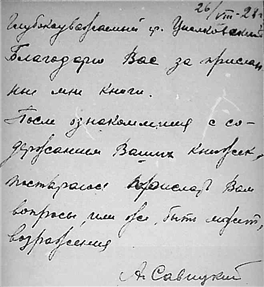 26/VIII-28 г
Глубокоуважаемый г. Циолковский
Благодарю Вас за прислан
ные мне книги.
После ознакомления с со-
держанием Ваших книжек,
постараюсь прислать Вам
вопросы, или же, быть может,
возражения
А. Савицкий